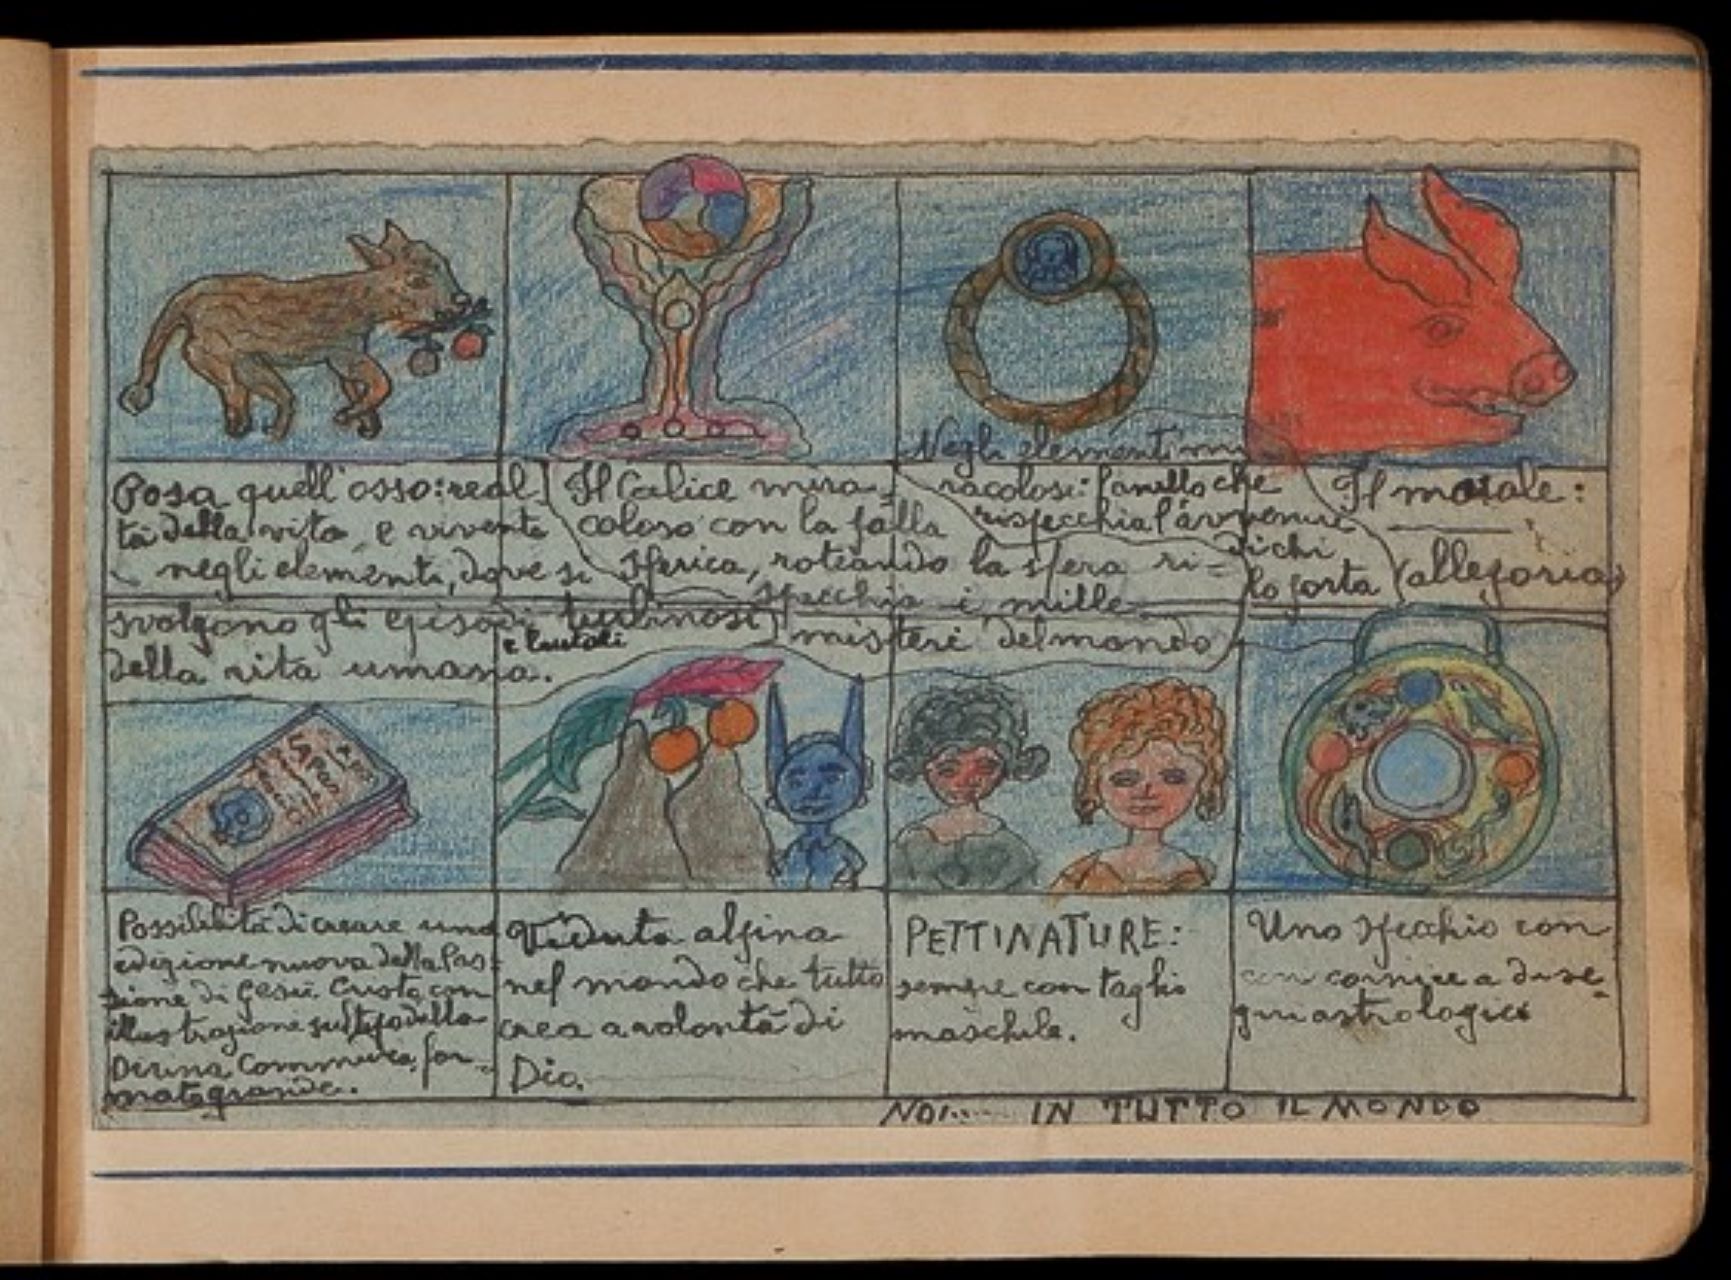 Posa quell'osso: real-
tà della vita, e vivente
negli elementi, dove si
svolgono gli episodi turbinosi
e brutali
della vita umana.
Il Calice mira-
coloso con la palla
sferica, roteando la sfera ri=
specchia i mille
misteri del mondo
Negli elementi mi
racolosi: l'anello che
rispecchia l'avvenire
di chi
lo porta
Il maiale:
(allegoria)
Possibilità di creare una
edizione nuova della Pas=
sione di Gesù Cristo con
illustrazione sul tipo della
Divina Commedia, for-
mato grande.
Veduta alpina
nel mondo che tutto
crea a volontà di
Dio.
PETTINATURE:
sempre con taglio
maschile.
Uno specchio con
con cornice a dise-
gni astrologici
NOI...... IN TUTTO IL MONDO